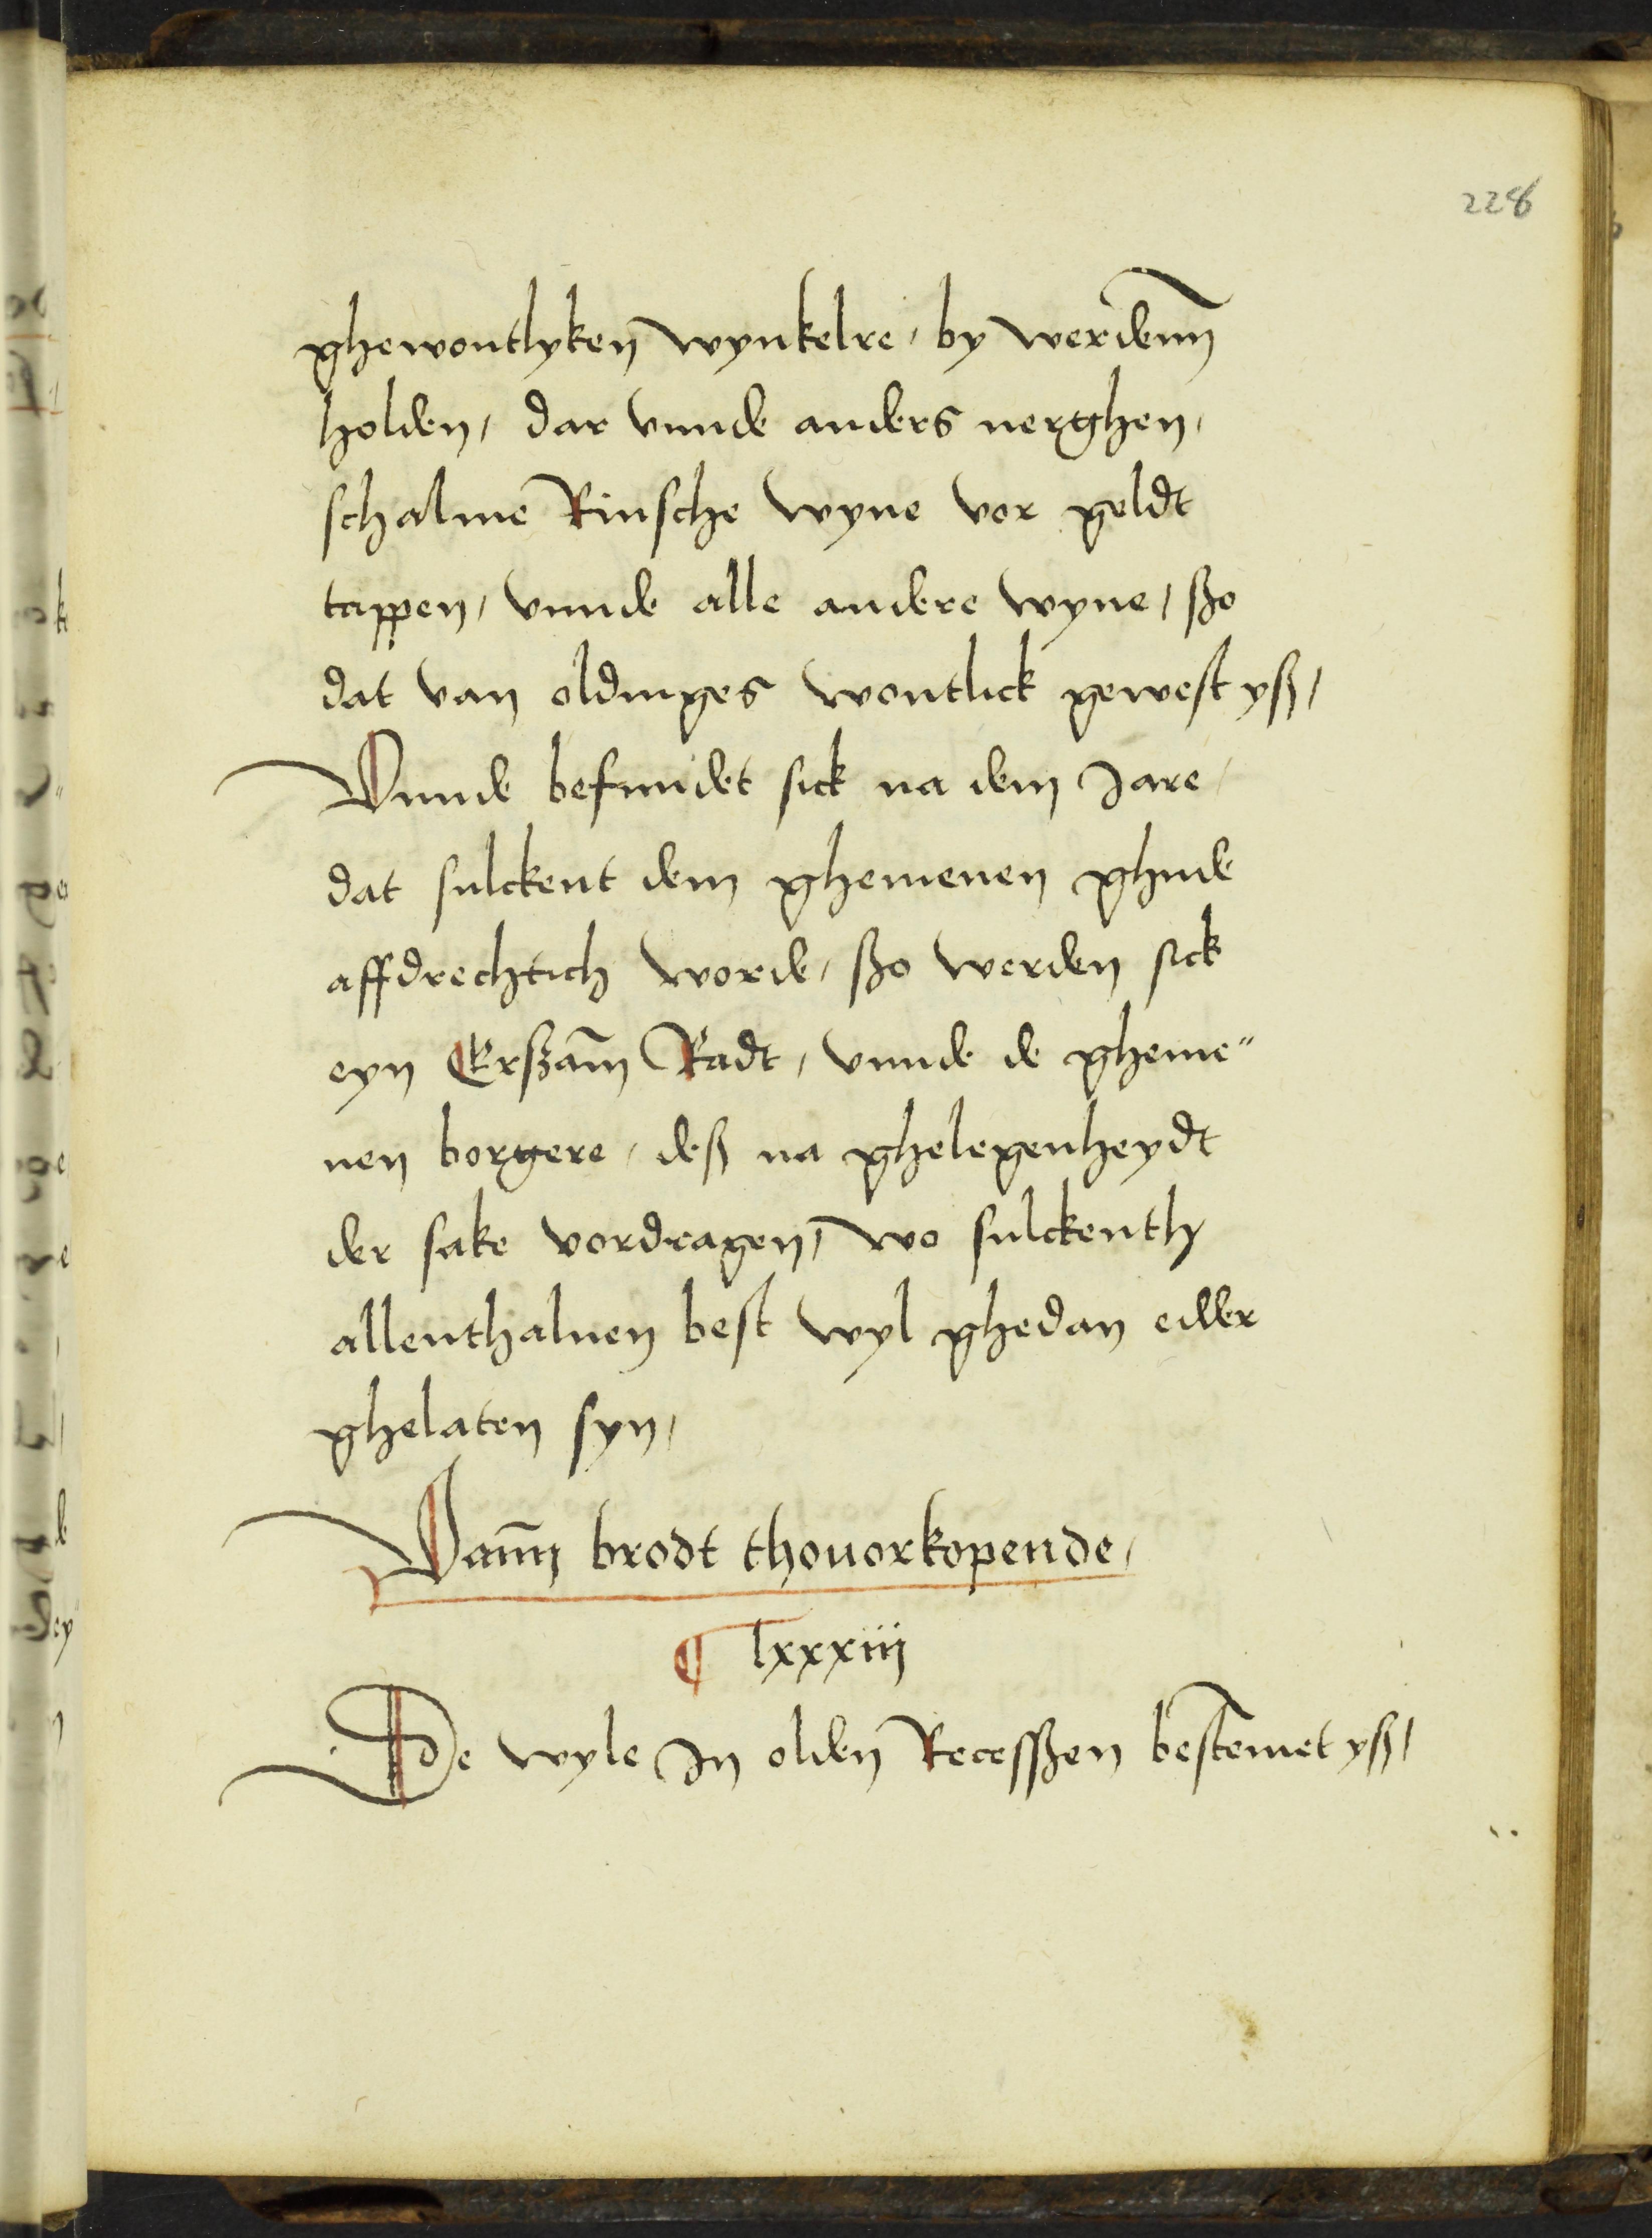 228
ghewontlyken wynkelre, by werdenn
holden, dar vnnde anders nerghen,
schalme Rinsche wyne vor geldt
tappen, vnnde alle andere wyne, ßo
dat van oldinges wontlick gewest yß,
Vnnde befindet sick na dem Jare,
dat sulckent dem ghemenen ghude
affdrechtich worde, ßo werden sick
eyn Erßam̄ Radt, vnnde de gheme"
nen borgere, deß na ghelegenheydt
der sake vordragen, wo sulckenth
allenthaluen best wyl ghedan edder
ghelaten syn,
Vann brodt thouorkopende,
¶ lxxxiij
De wyle In olden Recesßen bestemet yß,